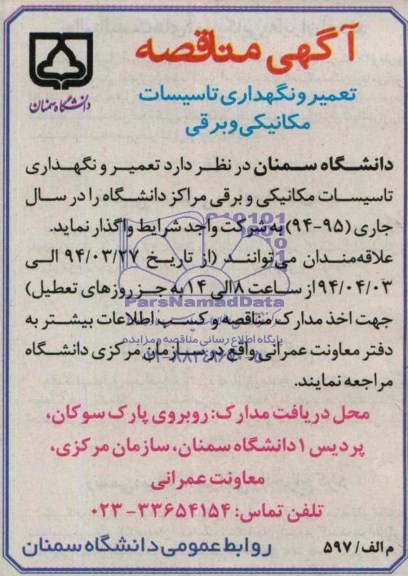 آگهی مناقصه
دانشگاه سمنان
تعمیر و نگهداری تاسیسات
مکانیکی و برقی
دانشگاه سمنان در نظر دارد تعمیر و نگهداری
تاسیسات مکانیکی و برقی مراکز دانشگاه را در سال
جاری (۹۵-۹۴) به شرکت واجد شرایط واگذار نماید.
علاقه‌مندان می‌توانند (از تاریخ ۹۴/۰۳/۲۷ الی
۹۴/۰۴/۰۳ از ساعت ۸ الی ۱۴ به جز روزهای تعطیل)
ParsNamadData
جهت اخذ مدارک مناقصه و کسب اطلاعات بیشتر به
پایگاه اطلاع رسانی مناقصه و مزایده
دفتر معاونت عمرانی واقع در سازمان مرکزی دانشگاه
مراجعه نمایند.
محل دریافت مدارک: روبروی پارک سوکان،
پردیس ۱ دانشگاه سمنان، سازمان مرکزی،
معاونت عمرانی
تلفن تماس: ۳۳۶۵۴۱۵۴-۰۲۳
روابط عمومی دانشگاه سمنان
م الف/ ۵۹۷